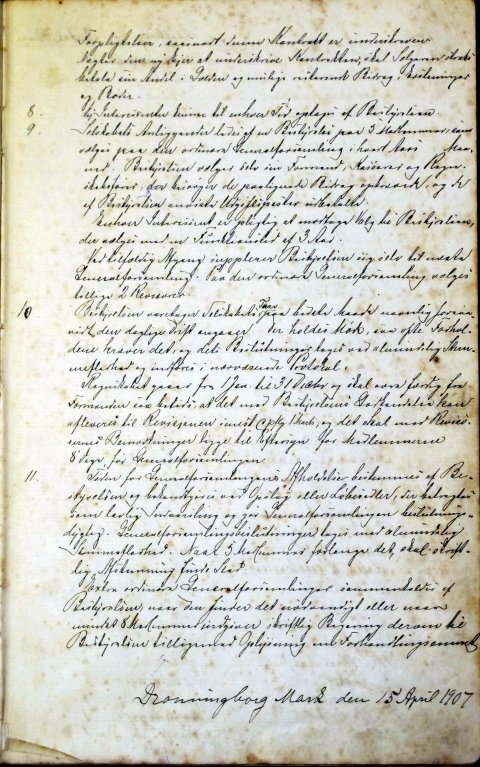 Forpligtelser, saasnart denne Kontrakt er underskreven
Nægter den ny Ejer at underskrive Kontrakten, skal Sælgeren straks
betale sin Andel i Gælden og mulige resterende Bidrag, Erstatninger
og Bøder.
8. Ny Interessenter kunne til enhver Tid optages af Bestyrelsen.
9. Selskabets Anliggender ledes af en Bestyrelse paa 3 Medlemmer, som
vælges paa den ordinære Generalforsamling, i hvert Aars Maa-
ned. Bestyrelsen vælger selv sin Formand, Kasserer og Regn-
skabsfører, der besørger de paalignede Bidrag opkrævede, og de
af Bestyrelsen anviste Udgiftsposter udbetalte.
Enhver Interessent er pligtig at modtage Valg til Bestyrelsen,
der vælges med en Funktionstid af 3 Aar.
Ved tilfældig Afgang supplerer Bestyrelsen sig selv til næste
Generalforsamling. Paa den ordinære Generalforsamling vælges
tillige 2 Revisorer
10 Bestyrelsen varetager Selskabets Tarv paa bedste Maade navnlig forsaa-
vidt den daglige Drift angaar. Der holdes Møde, saa ofte Forhol-
dene kræver det, og dets Beslutninger tages ved almindelig Stem-
meflerhed og indføres i nærværende Protokol.
Regnskabet gaar fra 1 Jan til 31 Decbr og skal være færdig fra
Formanden saa betids, at det med Bestyrelsens Godkendelse kan
afleveres til Revisionen inden og det skal med Reviso-
rernes Bemærkninger ligge til Eftersyn for Medlemmerne
8 Dage før Generalforsamlingen
11. Tiden for Generalforsamlingens Afholdelse bestemmes af Be-
styrelsen og bekendtgøres ved Opslag eller Løbesedler, der betragtes
som lovlig Indvarsling og gør Generalforsamlingen beslutnings-
dygtig. Generalforsamlingsbeslutninger tages med almindelig
Stemmeflerhed. Naar 5 Medlemmer forlange det, skal skrift-
lig Afstemning finde Sted.
Extra ordinære Generalforsamlinger sammenkaldes af
Bestyrelsen, naar den finder det nødvendigt eller naar
mindst 8 Medlemmer indgiver skriftlig Begæring derom til
Bestyrelsen tilligemed Oplysning om Forhandlingsemnet
Dronningborg Mark den 15 April 1907